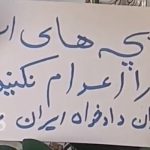 بچه های
را اعدام نکنید
دادخواه ایران